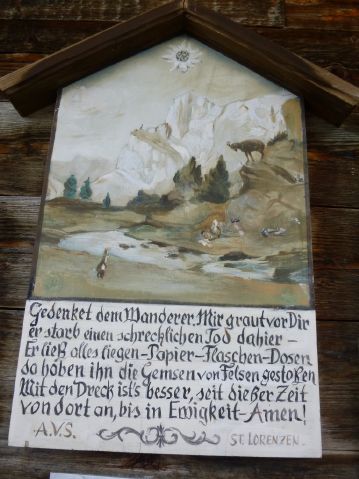 Gedenket dem Wanderer. Mir graut vor Dir
er starb einen schrecklichen Tod dahier -
Er ließ alles liegen-Papier-Flaschen-Dosen
da hoben ihn die Gemsen von Felsen gestoßen
Mit den Dreck ist's besser, seit dießer Zeit
von dort an, bis in Ewigkeit-Amen!
A.V.S. ST. LORENZEN.